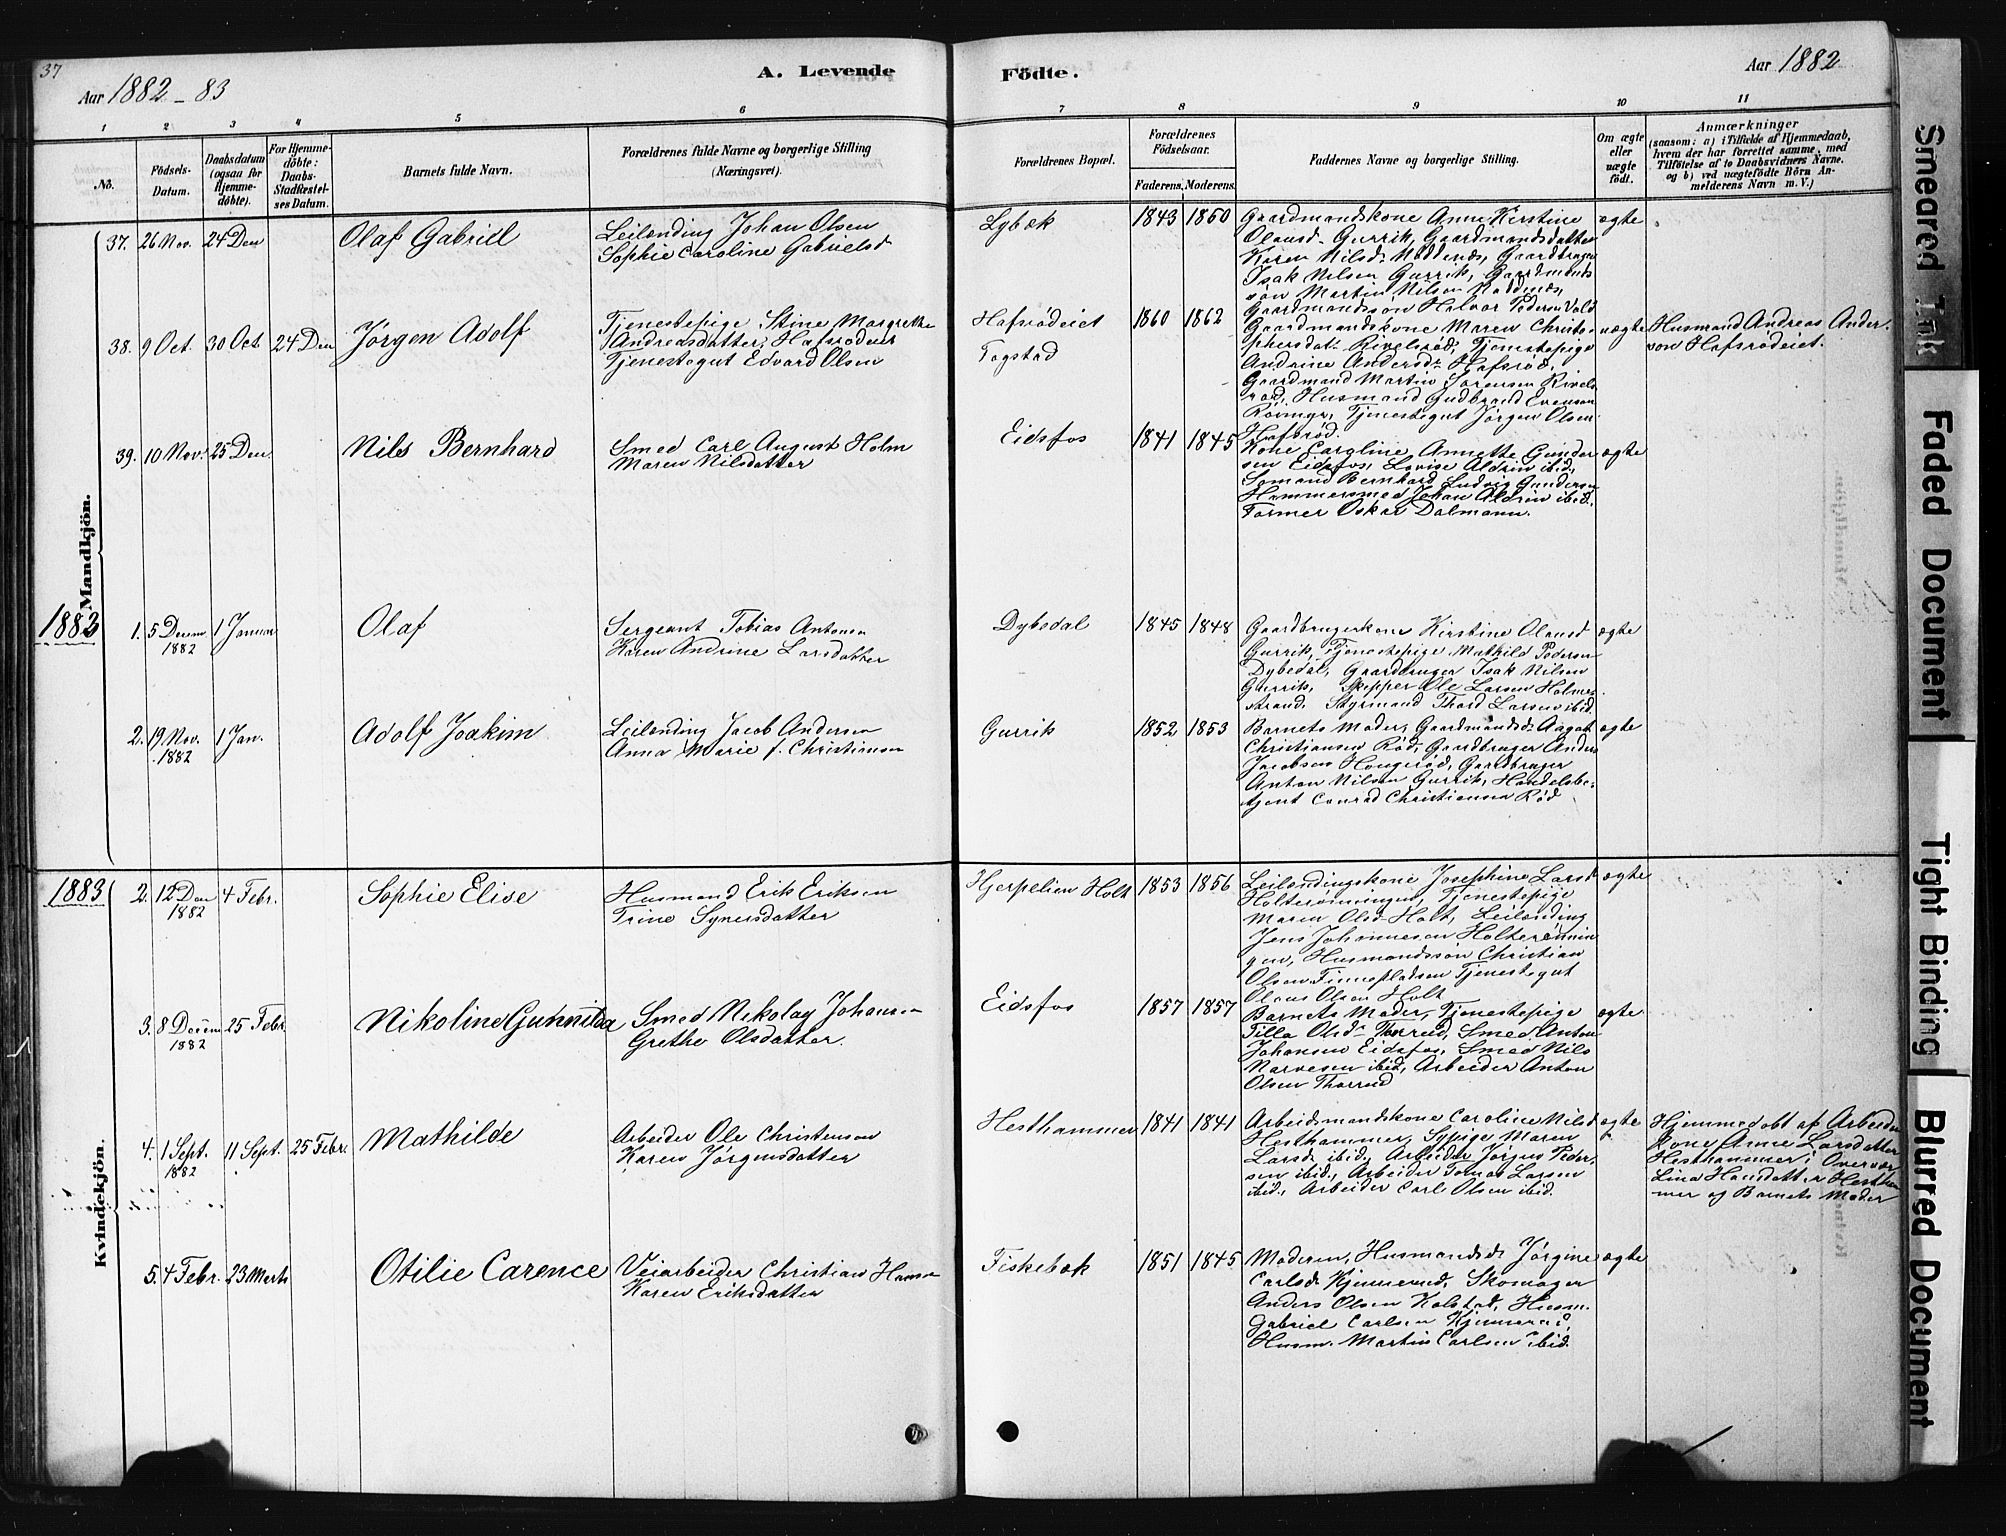 37
Aar 1882-83
A. Levende
Födte.
Aar 1882
1 2 3 4 5 6 7 8 9 10 11
No.
Födsels-
Datum.
Daabsdatum
(ogsaa for
Hjemme-
döbte).
For Hjemme-
döbte:
Daabs-
Stadfæstel-
ses Datum.
Barnets fulde Navn.
Forældrenes fulde Navne og borgerlige Stilling
(Næringsvei).
Forældrenes Bopæl.
Forældrenes
Födselsaar.
Faderens. Moderens.
Faddernes Navne og borgerlige Stilling.
Om ægte
eller
uægte
født.
Anmærkninger
(saasom: a) i Tilfælde af Hjemmedaab,
hvem der har forrettet samme, med
Tilföielse af to Daabsvidners Navne.
og b) ved uægtefödte Börn An-
melderens Navn m. V.)
Mandkjön.
37. 26 Nov. 24 Dec
Olaf Gabriel
Leilænding Johan Olsen
Sophie Caroline Gabrielsd
Lybæk
1843 1860
Gaardmandskone Anne Kirstine
Olausd. Gurrik, Gaardmandsdatter
Karen Nilsd. Noddenæs, Gaardbruger
Isak Nilsen Gurrik, Gaardmands
søn Martin Nilsen Noddnæs,
Gaardmandssøn Halvor Pedersen
ægte
38. 9 Oct. 30 Oct. 24 Dec
Jørgen Adolf
Tjenestepige Stine Margrethe
Andreasdatter, Hafsrødeiet
Tjenestegut Edvard Olsen
Hafsrødeiet
Fogstad
1860 1862
Gaardmandskone Maren Christo-
phersdatr Rivelsrød, Tjenestepige
Andrine Andersdr Hafsrød,
Gaardmand Martin Sørensen Rivels
rød, Husmand Gudbrand Evensen
Tjenestegut Jørgen Olsen
Hafsrød.
uægte
Husmand Andreas Ander-
sen Hafsrødeiet.
39. 10 Nov. 25 Dec.
Nils Bernhard
Smed Carl August Holm
Maren Nilsdatter
Eidsfos
1841 1845
Kone Caroline Annette Gunder
sen Eidsfos, Lovise Aldrin ibid,
Sømand Bernhard Ludvig Gundersen
Hammersmed Johan Aldrin ibid.
Former Oskar Dalmann.
ægte
1883
1. 5 Decem 1 Januar
1882
Olaf
Sergeant Tobias Antonsen
Karen Andrine Larsdatter
Dybedal
1845 1848
Gaardbrugerkone Kirstine Olausd
Gurrik, Tjenestepige Mathild Pedersen
Dybedal, Gaardbruger Isak Nilsen
Gurrik, Skipper Ole Larsen Holme-
strand, Styrmand Thord Larsen ibid.
ægte
2. 19 Nov. 1 Jan.
1882
Adolf Joakim
Leilænding Jacob Andersen
Anna Marie f. Christiansen
Gurrik
1852 1853
Barnets Moder, Gaardmandsd. Aagot
Christiansen Rød, Gaardbruger Anders
Jacobsen Haugerød, Gaardbruger
Anton Nilsen Gurrik, Handelsbe-
tjent Conrad Christiansen Rød
ægte
Kvindekjön.
1883
2. 12 Dec 4 Febr.
1882
Sophie Elise
Husmand Erik Eriksen
Trine Synersdatter
Hjerpelien Holt
1853 1856
Leilændingskone Josephine Larsd
Holterønningen, Tjenestepige
Maren Olsd. Holt, Leilænding
Jens Johannesen Holterønnin
gen, Husmandssøn Christian
Olsen Finnepladsen Tjenestegut
Olaus Olsen Holt
ægte
3. 8 Decem 25 Febr
1882
Nikoline Gunnilda
Smed Nikolay Johansen
Grethe Olsdatter.
Eidsfos
1857 1857
Barnets Moder, Tjenestepige
Tilla Olsdr Thorrud, Smed Anton
Johansen Eidsfos, Smed Nils
Narvesen ibid, Arbeider Anton
Olsen Thorrud
ægte
4. 1 Sept. 11 Sept. 25 Febr.
1882
Mathilde
Arbeider Ole Christensen
Karen Jørgensdatter
Hesthammer
1841 1841
Arbeidsmandskone Caroline Nilsd
Hesthammer, Sypige Maren
Larsd. ibid., Arbeider Jørgen Peder-
sen ibid., Arbeider Tomas Larsen
ibid., Arbeider Carl Olsen ibid.
ægte
Hjemmedøbt af Arbeider
kone Anne Larsdatter
Hesthammer i Overvær
Lina Hansdatter Hestham
mer og Barnets Moder
5. 4 Febr. 23 Marts
Otilie Carence
Veiarbeider Christian Hansen
Karen Eriksdatter
Fiskebæk
1851 1845
Moderen, Husmandsd. Jørgine
Carlsd. Kjennerud, Skomager
Anders Olsen Kolstad, Husm.
Gabriel Carlsen Kjennerud,
Husm. Martin Carlsen ibid.
ægte
Smeared Ink
Faded Document
Tight Binding
Blurred Document